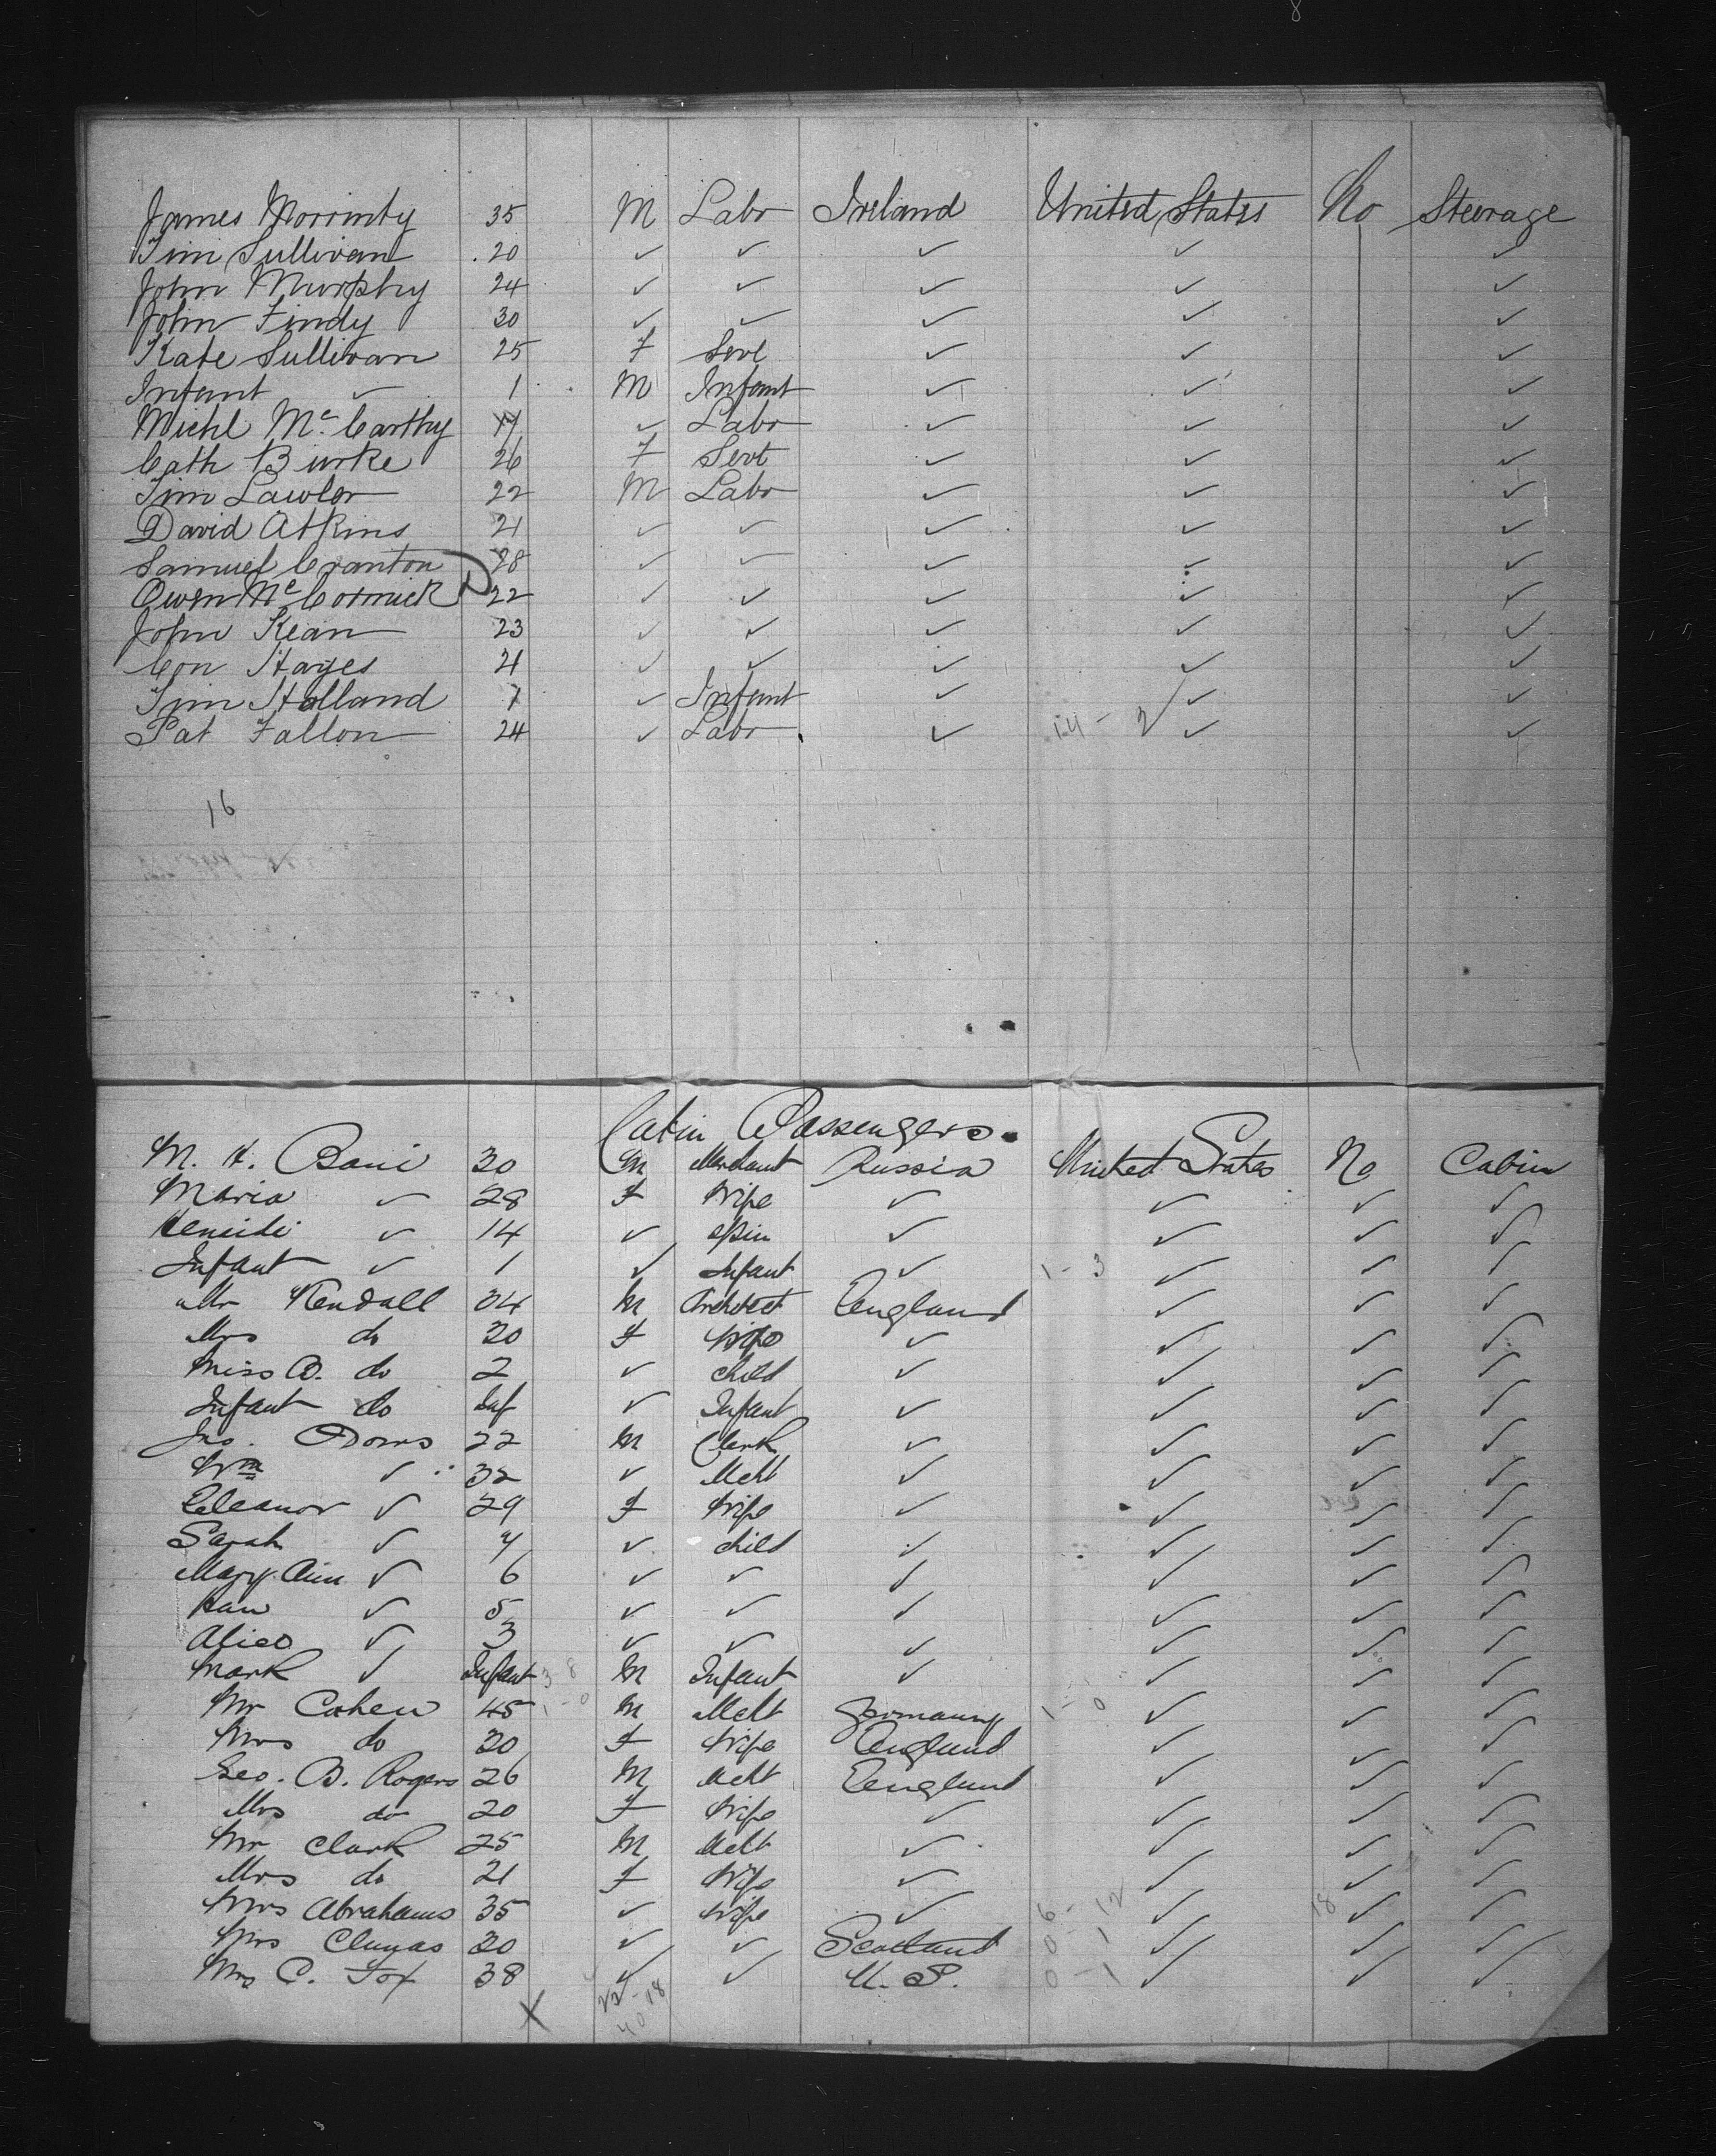 8
James Morrinty 35 M Labr Ireland United States No Steerage
Tim Sullivan 20 ✓ ✓ ✓ ✓ ✓
John Murphy 24 ✓ ✓ ✓ ✓ ✓
John Findy 30 ✓ ✓ ✓ ✓ ✓
Kate Sullivan 25 F Servt ✓ ✓ ✓
Infant ✓ 1 M Infant ✓ ✓ ✓
Michl McCarthy 17 ✓ Labr ✓ ✓ ✓
Cath Burke 26 F Servt ✓ ✓ ✓
Tim Lawler 22 M Labr ✓ ✓ ✓
David Atkins 21 ✓ ✓ ✓ ✓ ✓
Samuel Cranton 28 ✓ ✓ ✓ ✓ ✓
Owen McCormick 22 ✓ ✓ ✓ ✓ ✓
John Kean 23 ✓ ✓ ✓ ✓ ✓
Con Hayes 21 ✓ ✓ ✓ ✓ ✓
Tim Holland 1 ✓ Infant ✓ ✓ ✓
Pat Fallon 24 ✓ Labr ✓ 14 - 2 ✓ ✓
16
Cabin Passengers.
M. H. 30 M Merchant Russia United States No Cabin
Maria ✓ 28 F Wife ✓ ✓ ✓ ✓
✓ 14 ✓ Spin ✓ ✓ ✓ ✓
Infant ✓ 1 ✓ Infant ✓ 1 - 3 ✓ ✓ ✓
Mr Kendall 34 M Architect England ✓ ✓ ✓
Mrs do 30 F Wife ✓ ✓ ✓ ✓
Miss B. do 2 ✓ Child ✓ ✓ ✓ ✓
Infant do Inf ✓ Infant ✓ ✓ ✓ ✓
Jno. 22 M Clerk ✓ ✓ ✓ ✓
Wm ✓ 32 ✓ Mcht ✓ ✓ ✓ ✓
Eleanor ✓ 29 F Wife ✓ ✓ ✓ ✓
Sarah ✓ 7 ✓ Child ✓ ✓ ✓ ✓
Mary Ann ✓ 6 ✓ ✓ ✓ ✓ ✓ ✓
✓ 5 ✓ ✓ ✓ ✓ ✓ ✓
Alice ✓ 3 ✓ ✓ ✓ ✓ ✓ ✓
Mark ✓ Infant 3 8 M Infant ✓ ✓ ✓ ✓
Mr Cohen 45 1 - 0 M Mcht Germany 1 - 0 ✓ ✓ ✓
Mrs do 30 F Wife England ✓ ✓ ✓
Geo. B. Rogers 26 M Mcht England ✓ ✓ ✓
Mrs do 20 F Wife ✓ ✓ ✓ ✓
Mr Clark 25 M Mcht ✓ ✓ ✓ ✓
Mrs do 21 F Wife ✓ ✓ ✓ ✓
Mrs Abrahams 35 ✓ Wife ✓ 6 - 12 ✓ 18 ✓ ✓
Mrs Clunas 30 ✓ ✓ Scotland 0 - 1 ✓ ✓ ✓
Mrs C. Fox 38 ✓ ✓ U. S. 0 - 1 ✓ ✓ ✓
X 22 - 18
40